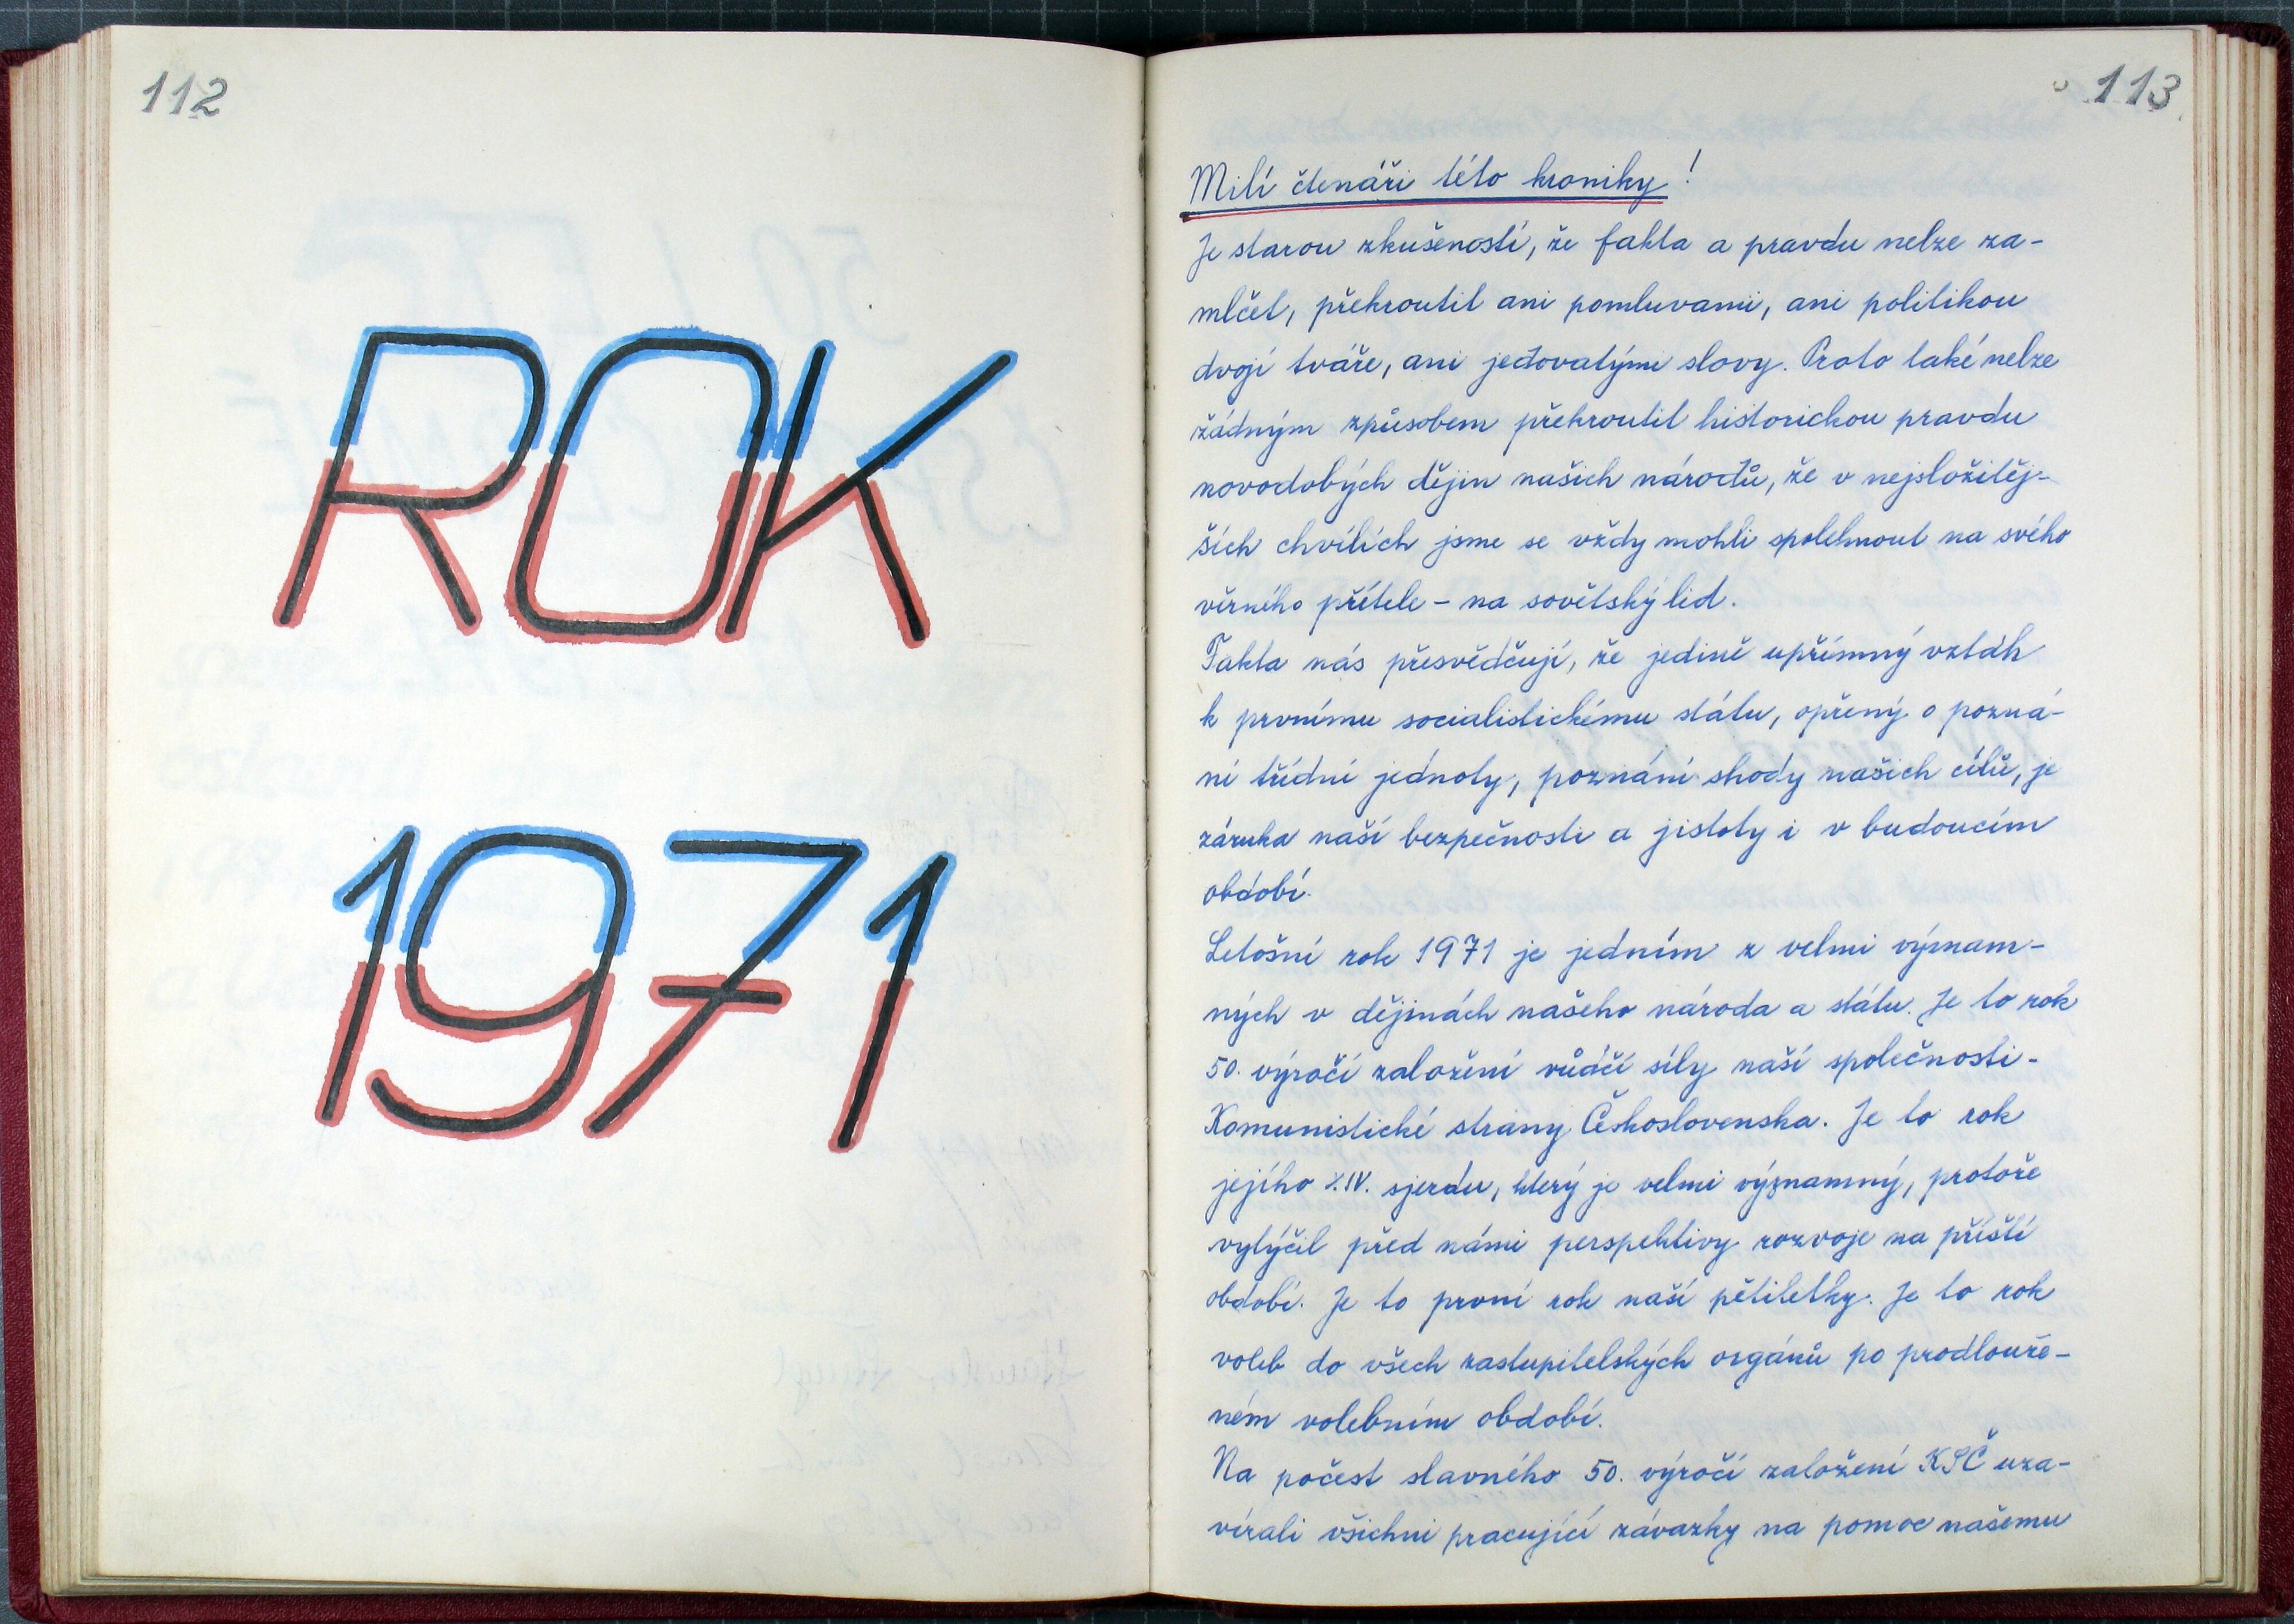 112
ROK
1971
113
Milí čtenáři této kroniky!
Je starou zkušeností, že fakta a pravdu nelze za-
mlčet, překroutit ani pomluvami, ani politikou
dvojí tváře, ani jedovatými slovy. Proto také nelze
žádným způsobem překroutit historickou pravdu
novodobých dějin našich národů, že v nejsložitěj-
ších chvílích jsme se vždy mohli spolehnout na svého
věrného přítele - na sovětský lid.
Fakta nás přesvědčují, že jedině upřímný vztah
k prvnímu socialistickému státu, opřený o pozná-
ní třídní jednoty, poznání shody našich cílů, je
záruka naší bezpečnosti a jistoty i v budoucím
období.
Letošní rok 1971 je jedním z velmi význam-
ných v dějinách našeho národa a státu. Je to rok
50. výročí založení vůdčí síly naší společnosti -
Komunistické strany Československa. Je to rok
jejího XIV. sjezdu, který je velmi významný, protože
vytýčil před námi perspektivy rozvoje na příští
období. Je to první rok naší pětiletky. Je to rok
voleb do všech zastupitelských orgánů po prodlouže-
ném volebním období.
Na počest slavného 50. výročí založení KSČ uza-
vírali všichni pracující závazky na pomoc našemu